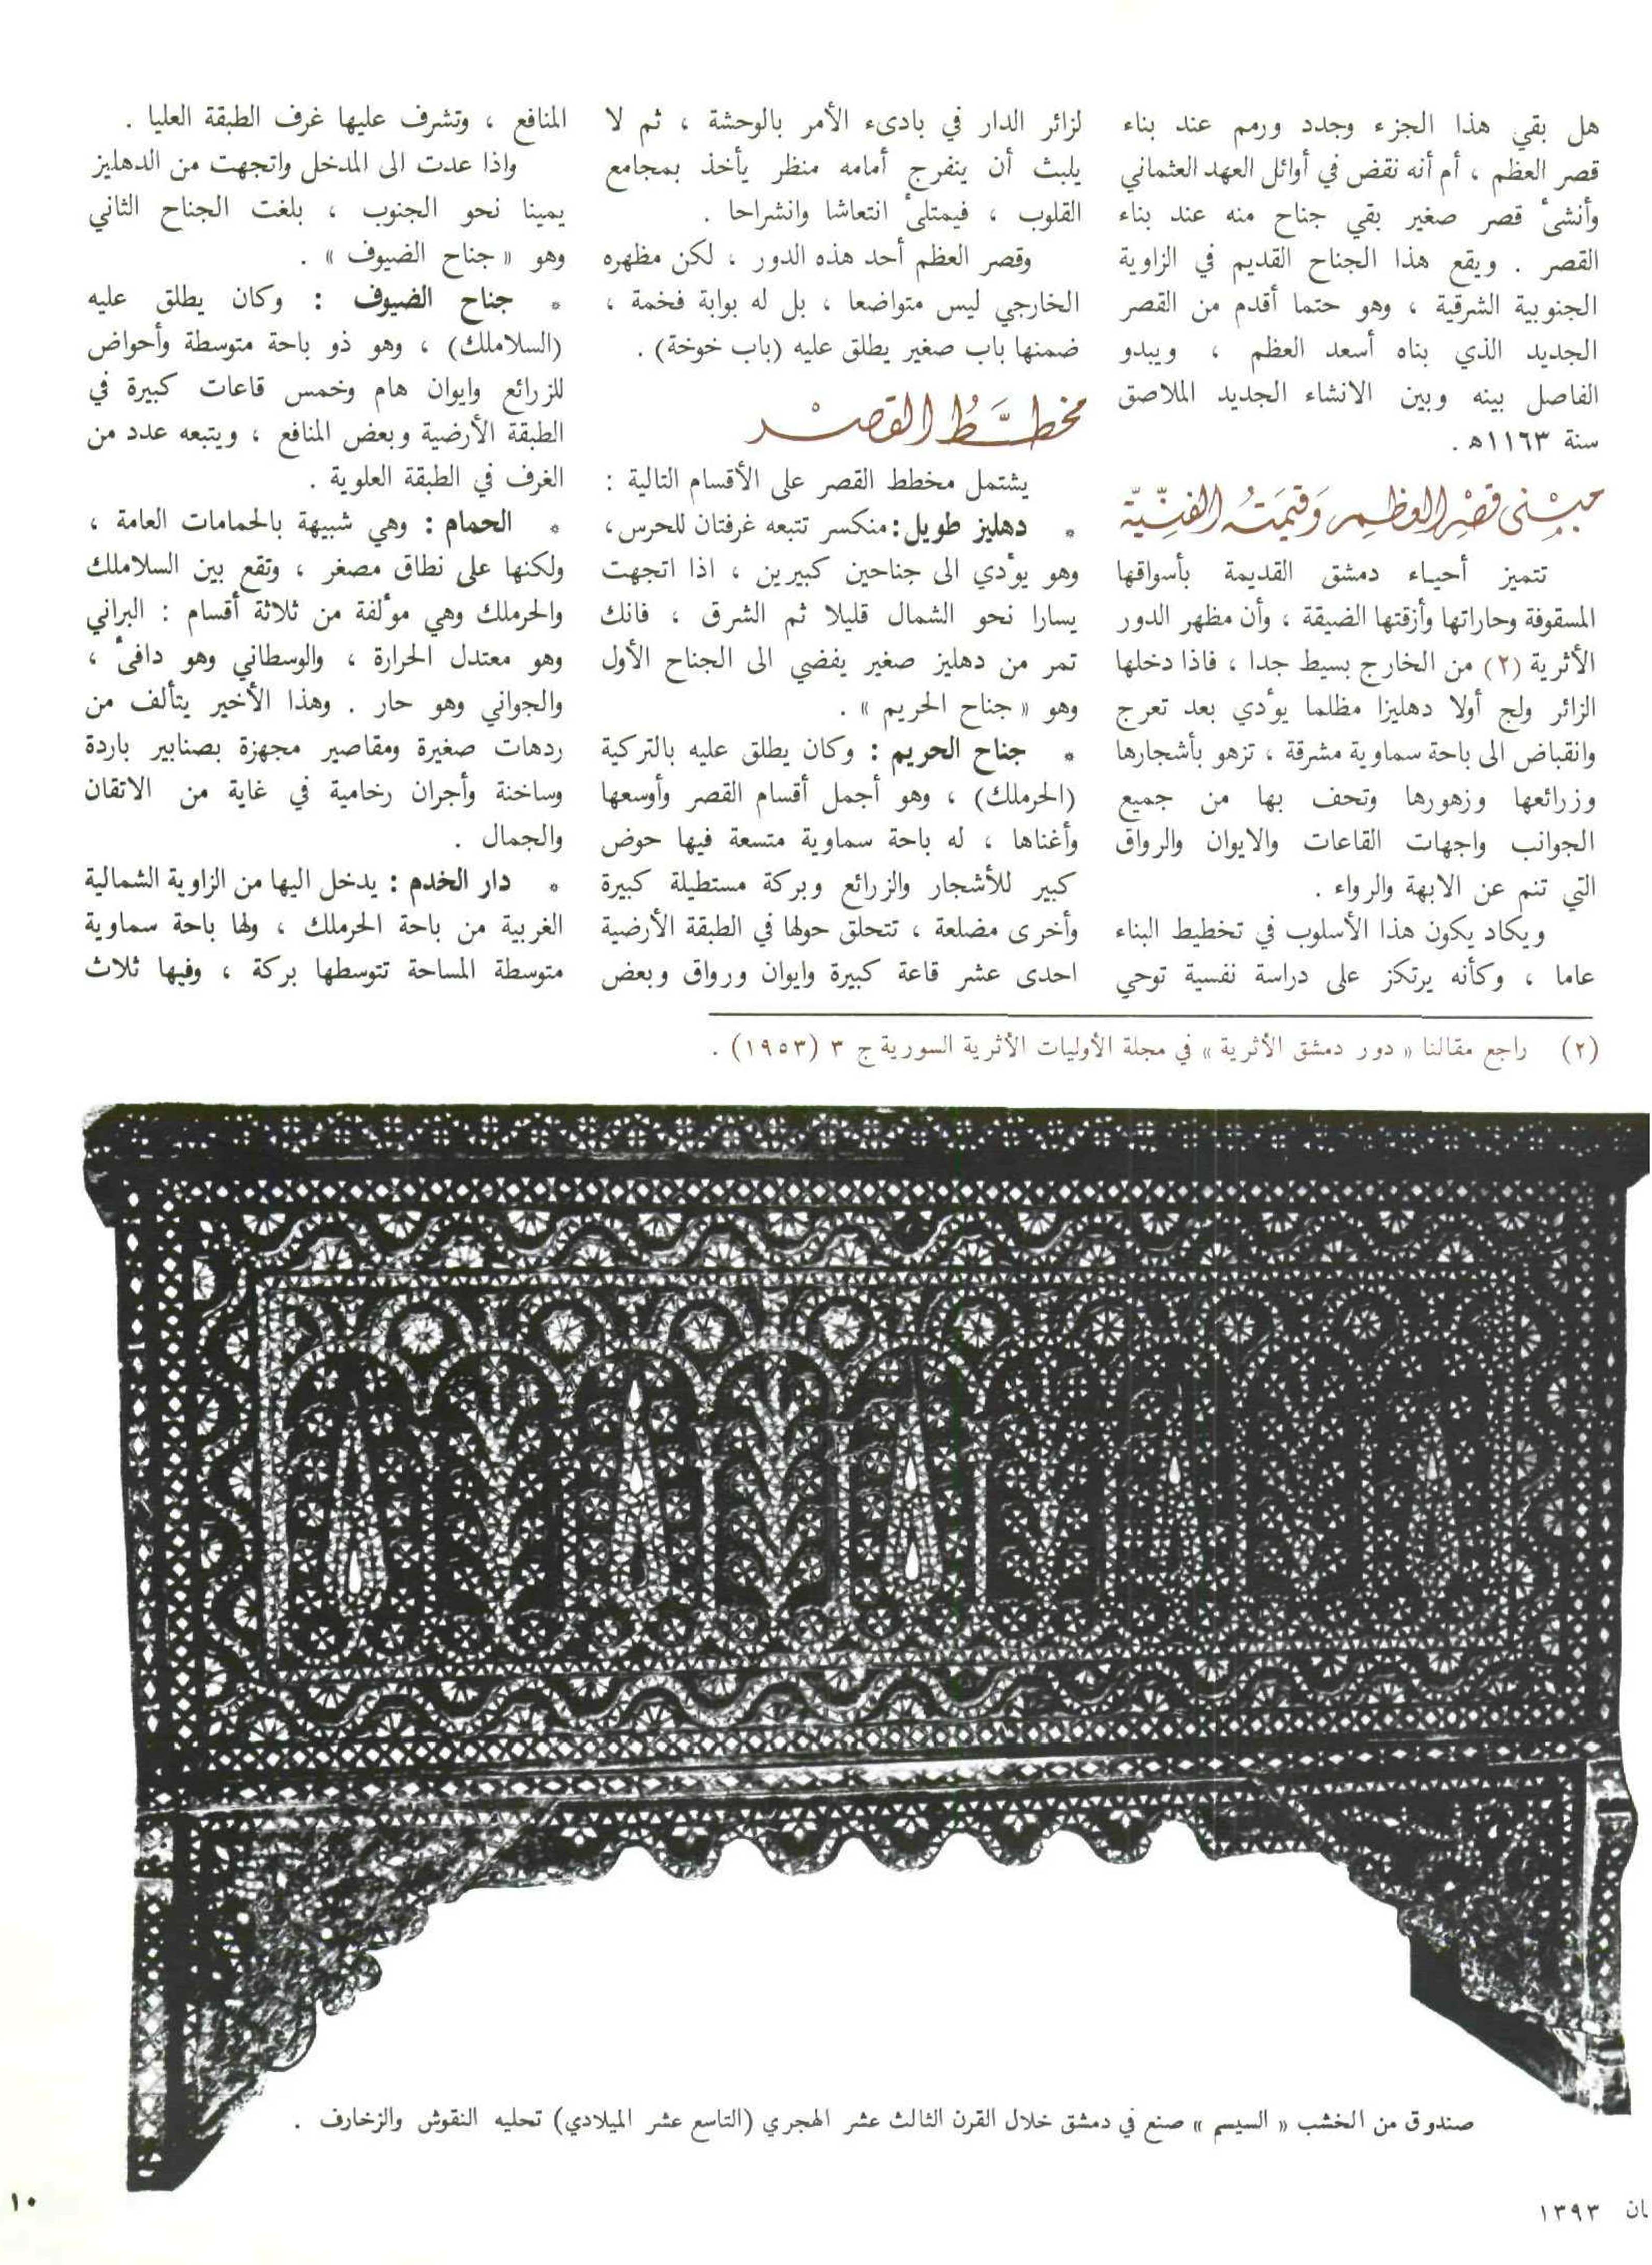 هل بقي هذا الجزء وجدد ورمم عند بناء
قصر العظم ، أم أنه نقض في أوائل العهد العثماني
وأنشئ قصر صغير بقي جناح منه عند بناء
القصر . ويقع هذا الجناح القديم في الزاوية
الجنوبية الشرقية ، وهو حتما أقدم من القصر
الجديد الذي بناه أسعد العظم ، ويبدو
الفاصل بينه وبين الانشاء الجديد الملاصق
سنة ١١٦٣ه .
مبنى قصر العظم وقيمته الفنية
تتميز أحياء دمشق القديمة بأسواقها
المسقوفة وحاراتها وأزقتها الضيقة ، وأن مظهر الدور
الأثرية (٢) من الخارج بسيط جدا ، فاذا دخلها
الزائر ولج أولا دهليزا مظلما يؤدي بعد تعرج
وانقباض الى باحة سماوية مشرقة ، تزهو بأشجارها
وزرائعها وزهورها وتحف بها من جميع
الجوانب واجهات القاعات والايوان والرواق
التي تنم عن الابهة والرواء .
ويكاد يكون هذا الأسلوب في تخطيط البناء
عاما ، وكأنه يرتكز على دراسة نفسية توحي
لزائر الدار في بادىء الأمر بالوحشة ، ثم لا
يلبث أن ينفرج أمامه منظر يأخذ بمجامع
القلوب ، فيمتلئ انتعاشا وانشراحا .
وقصر العظم أحد هذه الدور ، لكن مظهره
الخارجي ليس متواضعا ، بل له بوابة فخمة ،
ضمنها باب صغير يطلق عليه (باب خوخة) .
مخطط القصر
يشتمل مخطط القصر على الأقسام التالية :
* دهليز طويل : منكسر تتبعه غرفتان للحرس،
وهو يؤدي الى جناحين كبيرين ، اذا اتجهت
يسارا نحو الشمال قليلا ثم الشرق ، فانك
تمر من دهليز صغير يفضي الى الجناح الأول
وهو « جناح الحريم » .
* جناح الحريم : وكان يطلق عليه بالتركية
(الحرملك) ، وهو أجمل أقسام القصر وأوسعها
وأغناها ، له باحة سماوية متسعة فيها حوض
كبير للأشجار والزرائع وبركة مستطيلة كبيرة
وأخرى مضلعة ، تتحلق حولها في الطبقة الأرضية
احدى عشر قاعة كبيرة وايوان ورواق وبعض
المنافع ، وتشرف عليها غرف الطبقة العليا .
واذا عدت الى المدخل واتجهت من الدهليز
يمينا نحو الجنوب ، بلغت الجناح الثاني
وهو « جناح الضيوف » .
* جناح الضيوف : وكان يطلق عليه
(السلاملك) ، وهو ذو باحة متوسطة وأحواض
للزرائع وايوان هام وخمس قاعات كبيرة في
الطبقة الأرضية وبعض المنافع ، ويتبعه عدد من
الغرف في الطبقة العلوية .
* الحمام : وهي شبيهة بالحمامات العامة ،
ولكنها على نطاق مصغر ، وتقع بين السلاملك
والحرملك وهي مؤلفة من ثلاثة أقسام : البراني
وهو معتدل الحرارة ، والوسطاني وهو دافئ ،
والجواني وهو حار . وهذا الأخير يتألف من
ردهات صغيرة ومقاصير مجهزة بصنابير باردة
وساخنة وأجران رخامية في غاية من الاتقان
والجمال .
* دار الخدم : يدخل اليها من الزاوية الشمالية
الغربية من باحة الحرملك ، ولها باحة سماوية
متوسطة المساحة تتوسطها بركة ، وفيها ثلاث
(٢) راجع مقالنا « دور دمشق الأثرية » في مجلة الأوليات الأثرية السورية ج ٣ (١٩٥٣) .
صندوق من الخشب « السيسم » صنع في دمشق خلال القرن الثالث عشر الهجري (التاسع عشر الميلادي) تحليه النقوش والزخارف .
ان ١٣٩٣
١٠